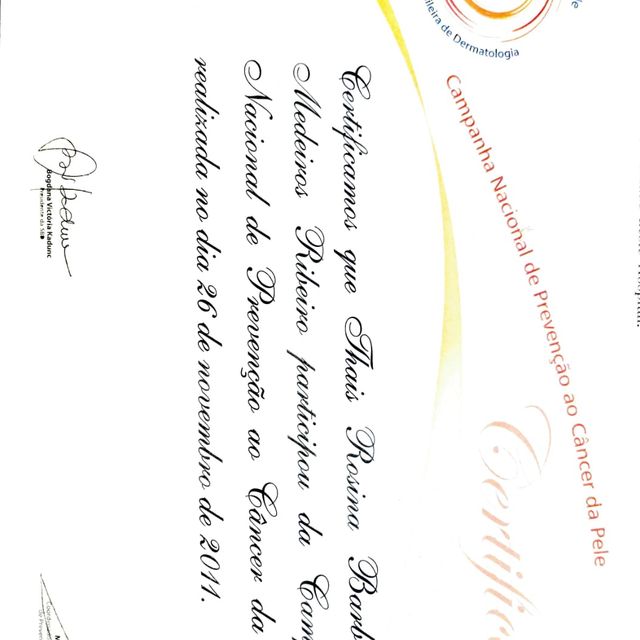 de Dermatologia
Campanha Nacional de Prevenção ao Câncer da Pele
Certificamos que Thais Rosina
Medeiros Ribeiro participou da
Nacional de Prevenção ao Câncer da
realizada no dia 26 de novembro de 2011.
Bogdana Victória Kadunc
Presidente da SBD